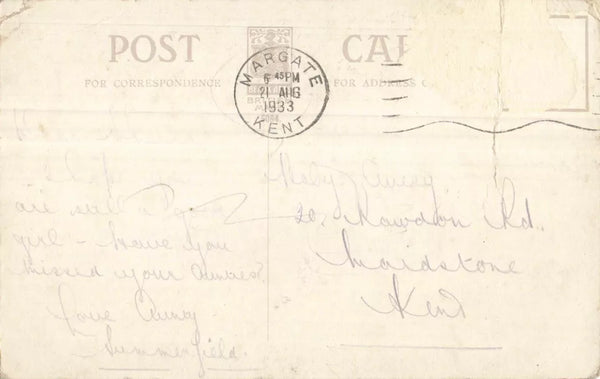 POST CAR
FOR CORRESPONDENCE
FOR ADDRESS
MARGATE
6 45 PM
21 AUG
1933
KENT
I hope
are still a good
girl - Have you
missed your Aunties?
Love Aunty
Summerfield.
20, Rawdon Rd.
Maidstone
Kent